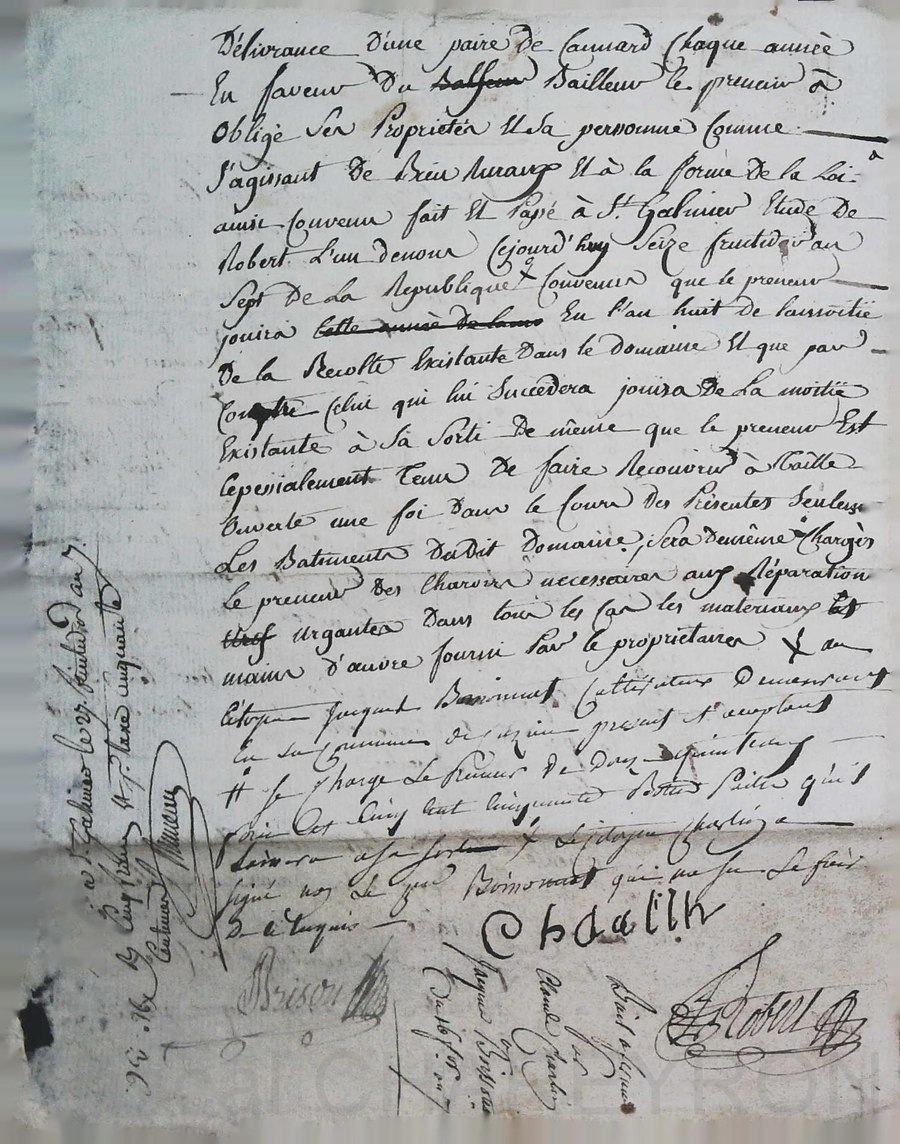 Délivrance d'une paire de Cannard Chaque année
En faveur du Bailleur le preneur à
Obligé Ses Propriétés Et Sa personne Comme
S'agissant de Bien Ruraux Et à la forme De la Loi
ainsi Convenu fait Et Passé à St Galmier Etude De
Robert L'un denous Cejourd'huy Seize fructidor an
Sept De La Republique Convenus que le preneur
jouira cette année De la En l'an huit de la moitié
De la Recolte Existante Dans le Domaine Et que par
Contre Celui qui lui Succedera jouira De La moitié
Existante à Sa Sorti De même que le preneur Est
Cepessialement Tenu De faire Recouvrir à Taille
Ouverte une foi Dans le Cours des Présentes Seulem
Les Batiments Dudit Domaine, Sera Demême Chargés
Le preneur des Charois necessaires aux Réparation
urgantes Dans tous les Cas les materiaux Et
main d'œuvre fourni Par le propriétaires X au
Citoyen Jacques Boissonnat Cultivateur Demeurant
En sa Commune de present et acceptant
# Se Charge Le Preneur De Douze quinteaux
foin Et Cinq Cent Cinquante Bottes Paille qu'il
Laissera a Sa sortie X Le Citoyen Charlin a
signé non Le Boissonnat qui na su Le faire
De ce Enquis
Chdallin
Brison
Robert
Bail a ferme
par
Claude Charlin
a
Jacques Boissonat
Du 16 for an 7
à St Galmier le 27 fructidor an 7.